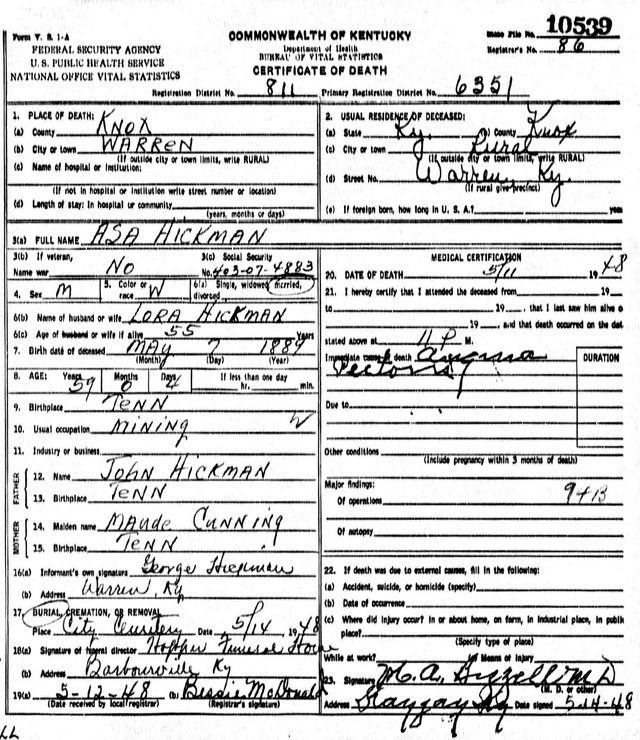 Form V. S. 1-A
COMMONWEALTH OF KENTUCKY
10539
FEDERAL SECURITY AGENCY
U. S. PUBLIC HEALTH SERVICE
NATIONAL OFFICE VITAL STATISTICS
Department of Health
BUREAU OF VITAL STATISTICS
CERTIFICATE OF DEATH
State File No.
Registrar's No. 86
Registration District No. 811 Primary Registration District No. 6351
1. PLACE OF DEATH:
(a) County KNOX
(b) City or town WARREN
(If outside city or town limits, write RURAL)
(c) Name of hospital or institution:
(If not in hospital or institution write street number or location)
(d) Length of stay: In hospital or community
(years, months or days)
2. USUAL RESIDENCE OF DECEASED:
(a) State Ky. (b) County Knox
(c) City or town Rural
(If outside city or town limits, write RURAL)
(d) Street No. Warren, Ky.
(If rural give precinct)
(e) If foreign born, how long in U. S. A.? years
3(a) FULL NAME ASA HICKMAN
3(b) If veteran,
Name war NO
3(c) Social Security
No. 403-07-4883
4. Sex M
5. Color or
race W
6(a) Single, widowed, married,
divorced
6(b) Name of husband or wife LORA HICKMAN
6(c) Age of husband or wife if alive 55 Years
7. Birth date of deceased MAY 7 1889
(Month) (Day) (Year)
8. AGE: Years 59 Months 0 Days 4 If less than one day
hr. min.
9. Birthplace TENN
10. Usual occupation MINING W
11. Industry or business
FATHER
12. Name JOHN HICKMAN
13. Birthplace TENN
MOTHER
14. Maiden name MAUDE CUNNING
15. Birthplace TENN
16(a) Informant's own signature George Hickman
(b) Address Warren, Ky
17. BURIAL, CREMATION, OR REMOVAL
Place City Cemetery Date 5/14 1948
18(a) Signature of funeral director Hopper Funeral Home
(b) Address Barbourville Ky
19(a) 5-12-48 (b) Bessie McDonald
(Date received by local registrar) (Registrar's signature)
MEDICAL CERTIFICATION
20. DATE OF DEATH 5/11 1948
21. I hereby certify that I attended the deceased from 19
to 19 , that I last saw him alive o
19 , and that death occurred on the dat
stated above at 11 P M.
Immediate cause of death Angina
Pectoris
DURATION
Due to
Other conditions
(Include pregnancy within 3 months of death)
Major findings:
Of operations 94B
Of autopsy
22. If death was due to external causes, fill in the following:
(a) Accident, suicide, or homicide (specify)
(b) Date of occurrence
(c) Where did injury occur? In or about home, on farm, in industrial place, in public
place?
(Specify type of place)
While at work? (e) Means of injury
23. Signature M. A.
(M. D. or other)
Address Ky Date signed 5-14-48